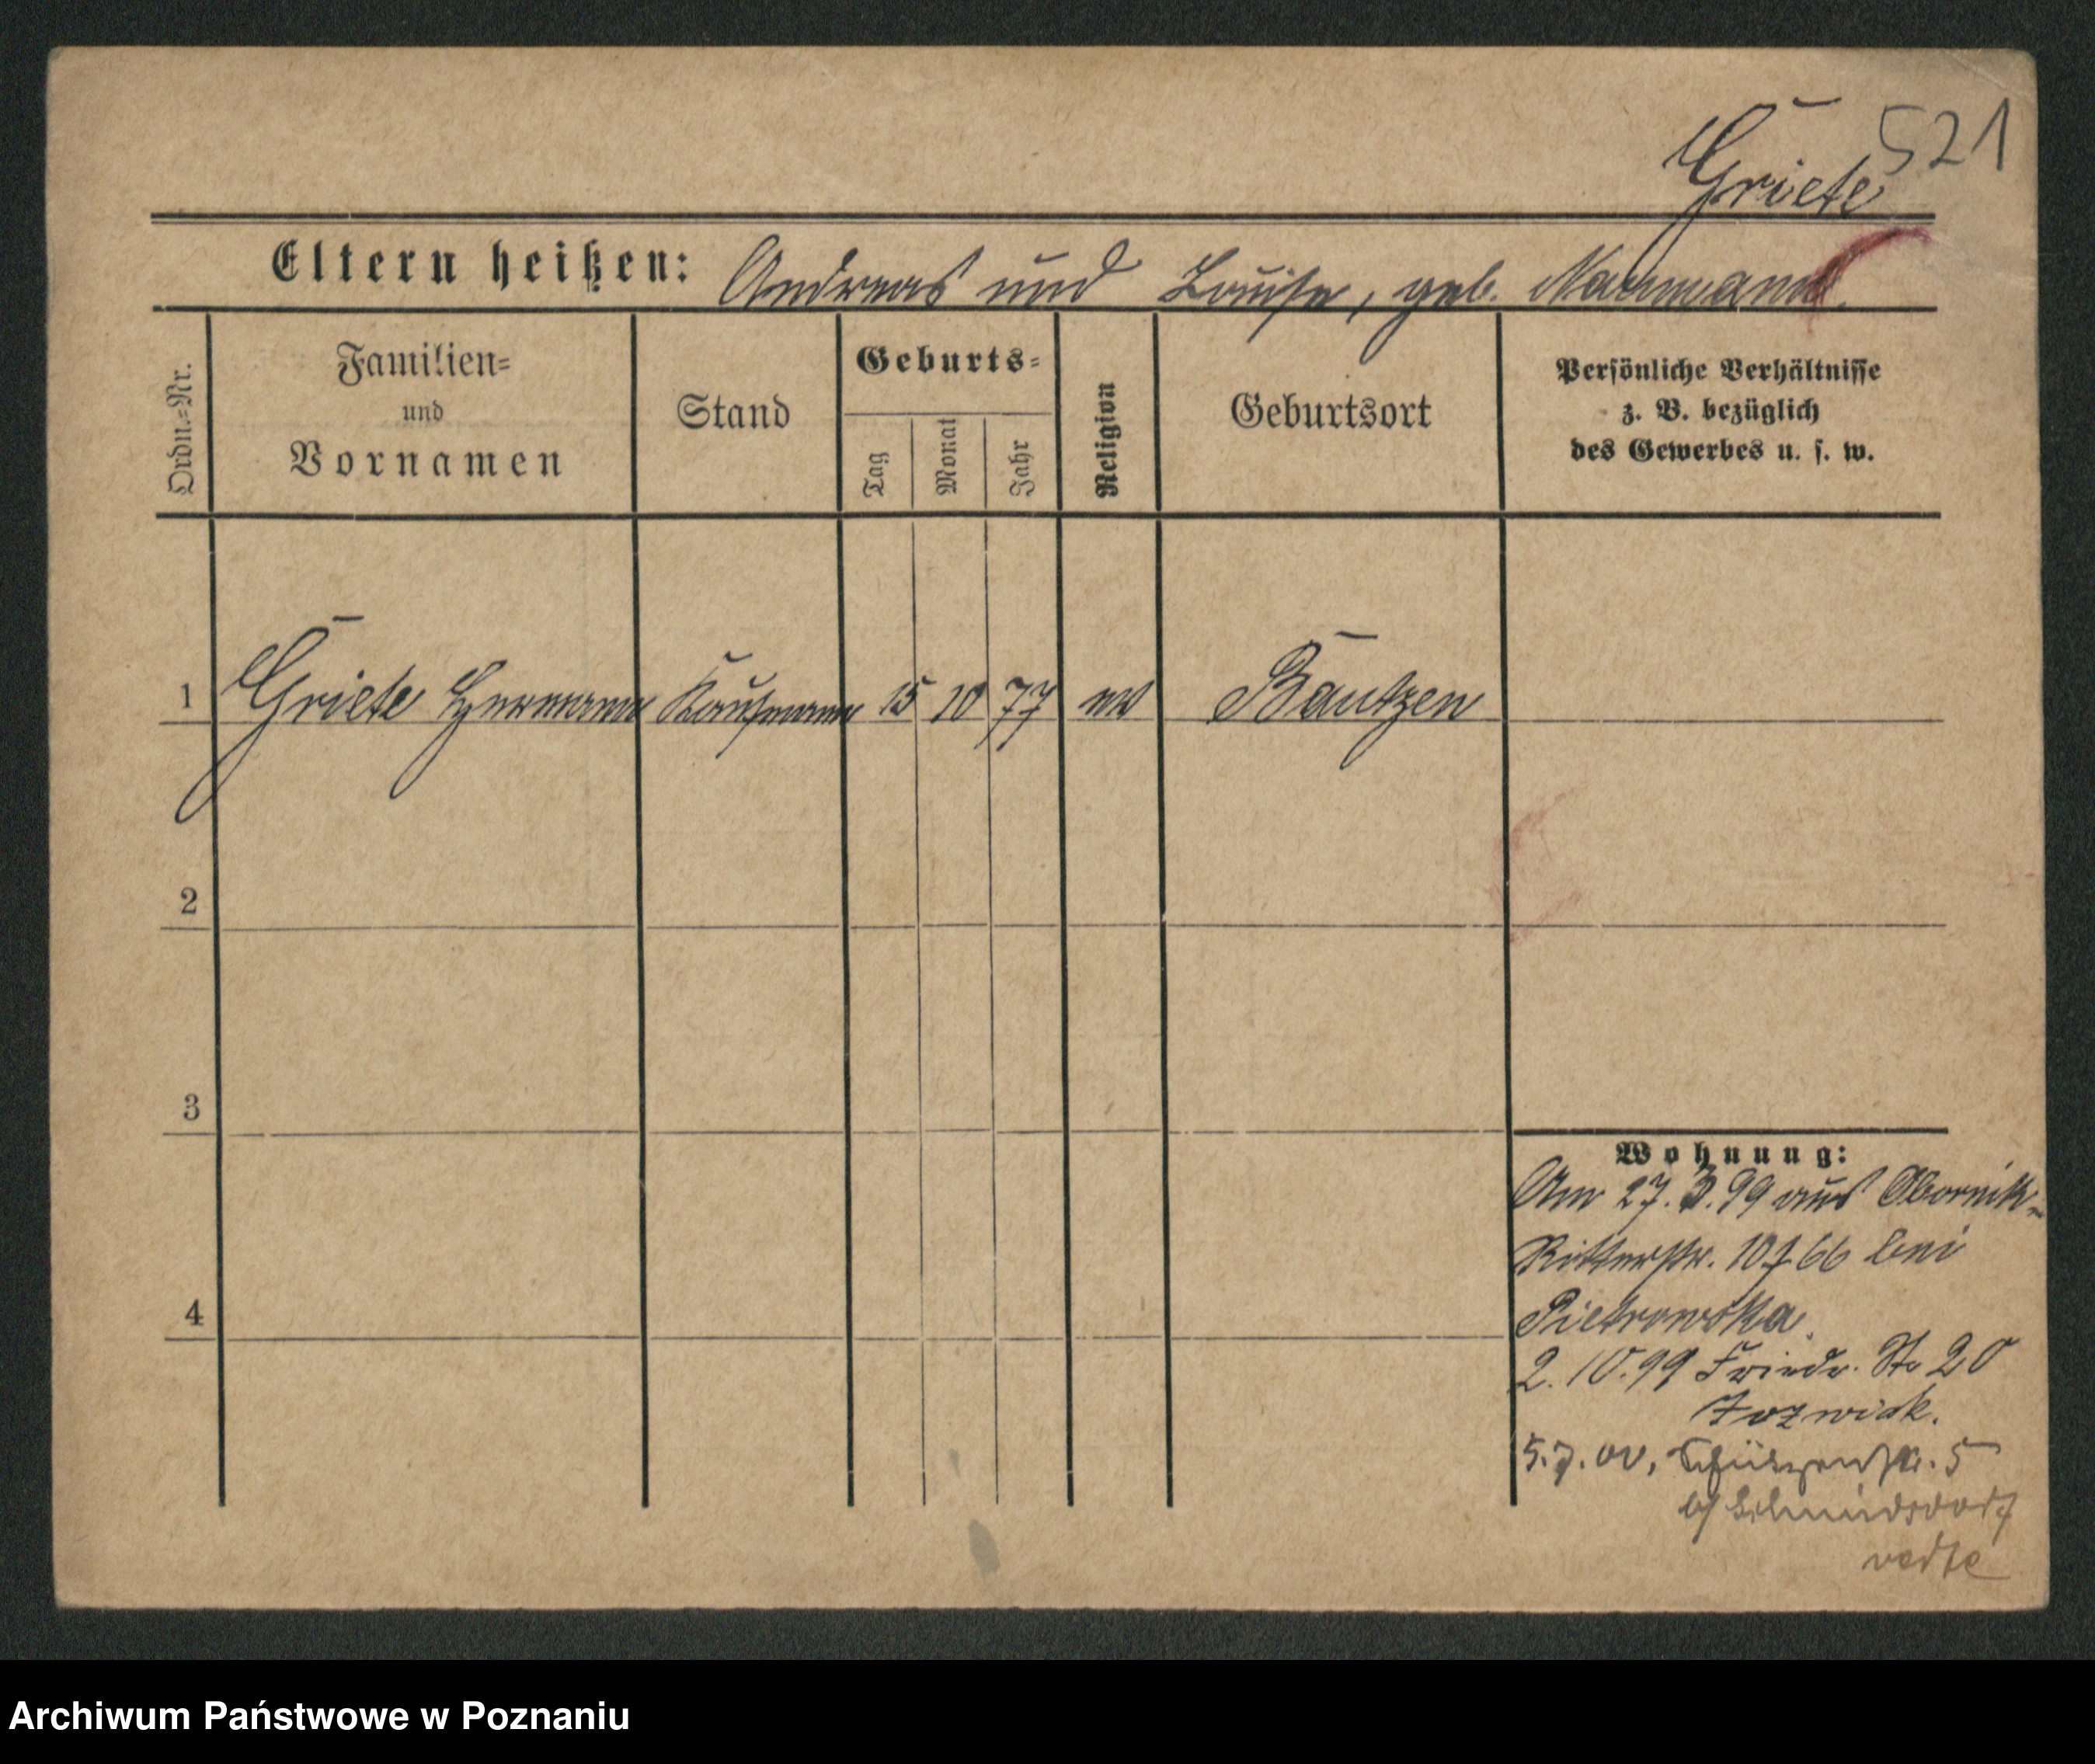 521
Griete
Eltern heißen: Andreas und Louise, geb.
Ordn.=Nr.
Familien=
und
Vornamen
Stand
Geburts=
Tag
Monat
Jahr
Religion
Geburtsort
Persönliche Verhältnisse
z. B. bezüglich
des Gewerbes u. s. w.
1 Griete Hermann Kaufmann 15 10 77 ev Bautzen
2
3
4
Wohnung:
Am 27. 3. 99 aus Obornik
Ritterstr. bei
Pietrowska.
2. 10. 99 Friedr. Str 20
5. 7. 00, Schützenstr. 5
b/
Archiwum Państwowe w Poznaniu